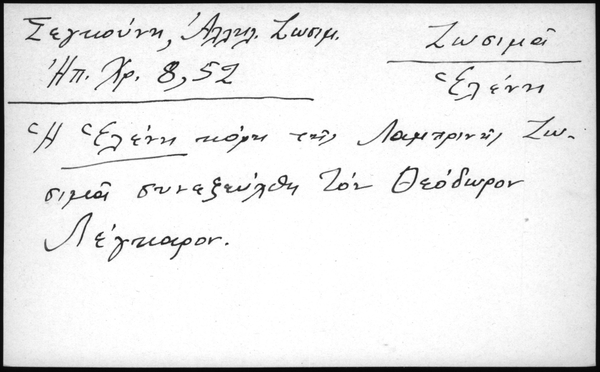 Σεγκούνη, Ἀλληλ. Ζωσιμ.
Ἠπ. Χρ. 8, 52
Ζωσιμᾶ
Ἑλένη
Ἡ Ἑλένη κόρη τῆς Λαμπρινῆς Ζω-
σιμᾶ συνεζεύχθη τόν Θεόδωρον
Λέγκαρον.